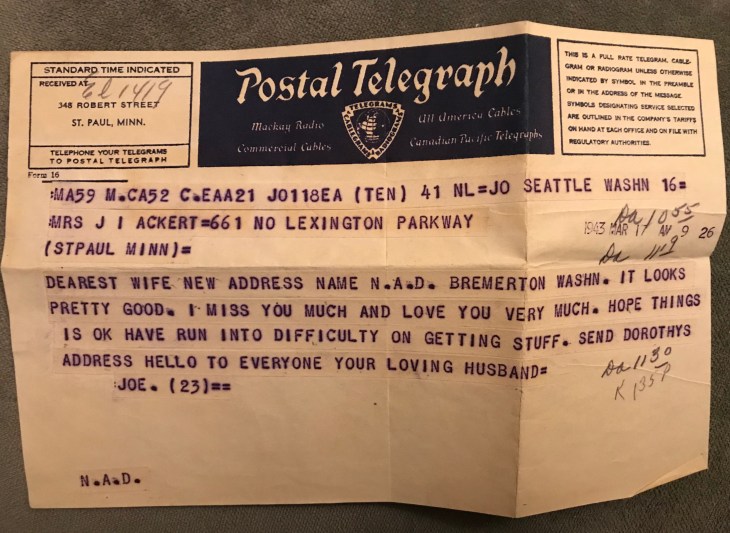 STANDARD TIME INDICATED
RECEIVED AT
El 1419
348 ROBERT STREET
ST. PAUL, MINN.
TELEPHONE YOUR TELEGRAMS
TO POSTAL TELEGRAPH
Form 16
Postal Telegraph
Mackay Radio
Commercial Cables
TELEGRAMS
CABLEGRAMS
RADIOGRAMS
All America Cables
Canadian Pacific Telegraphs
THIS IS A FULL RATE TELEGRAM, CABLE-
GRAM OR RADIOGRAM UNLESS OTHERWISE
INDICATED BY SYMBOL IN THE PREAMBLE
OR IN THE ADDRESS OF THE MESSAGE.
SYMBOLS DESIGNATING SERVICE SELECTED
ARE OUTLINED IN THE COMPANY'S TARIFFS
ON HAND AT EACH OFFICE AND ON FILE WITH
REGULATORY AUTHORITIES.
:MA59 M.CA52 C.EAA21 JO118EA (TEN) 41 NL=JO SEATTLE WASHN 16=
:MRS J I ACKERT=661 NO LEXINGTON PARKWAY
Da 1055
1943 MAR 17 AM 9 26
(STPAUL MINN)=
Da 119
DEAREST WIFE NEW ADDRESS NAME N.A.D. BREMERTON WASHN. IT LOOKS
PRETTY GOOD. I MISS YOU MUCH AND LOVE YOU VERY MUCH. HOPE THINGS
IS OK HAVE RUN INTO DIFFICULTY ON GETTING STUFF. SEND DOROTHYS
ADDRESS HELLO TO EVERYONE YOUR LOVING HUSBAND=
Da 1130
:JOE. (23)==
K 135P
N.A.D.